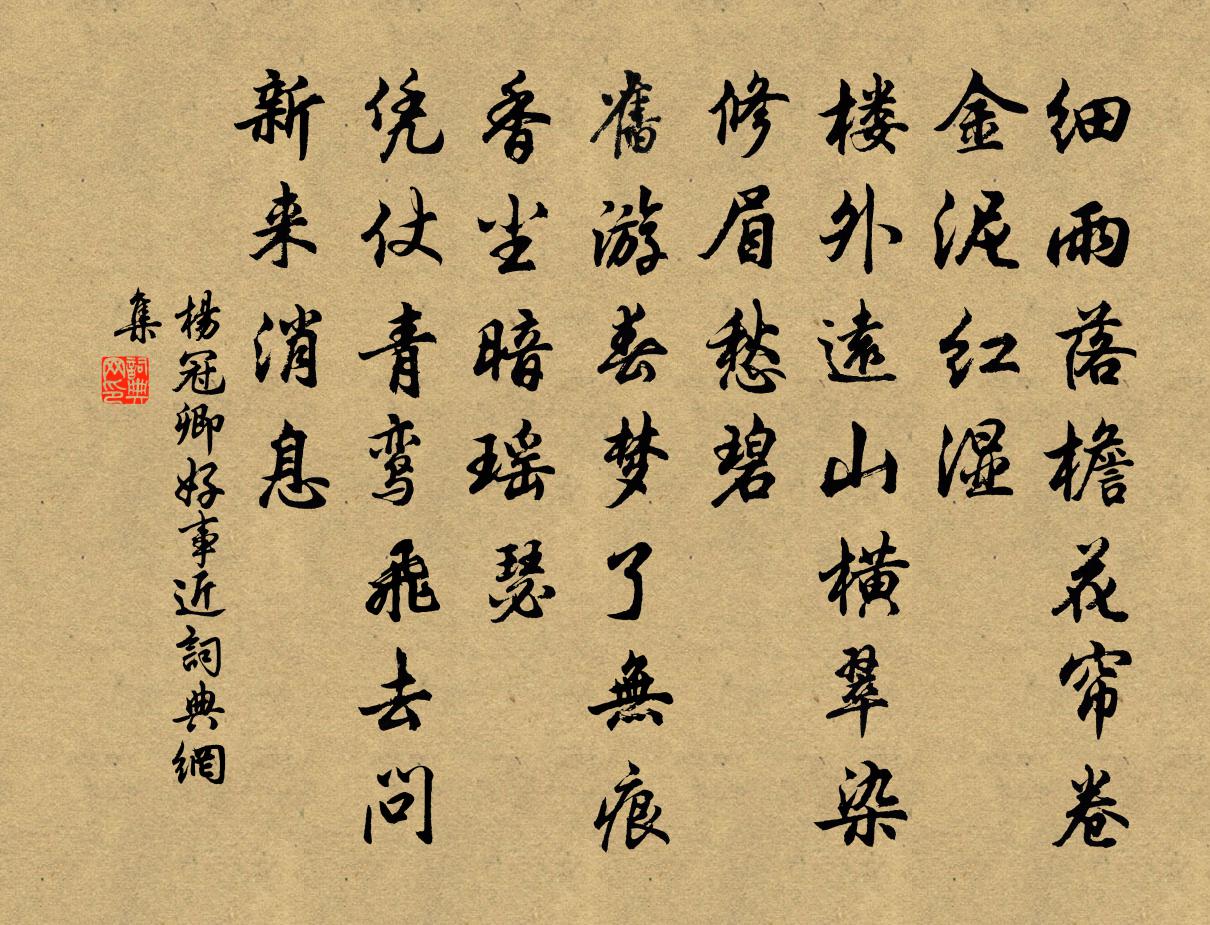 细雨落檐花帘卷
金泥红湿
楼外遠山横翠染
修眉愁碧
舊游春梦了無痕
香尘暗瑶瑟
凭仗青鸾飛去问
新来消息
楊冠卿好事近詞典網
集
詞典網印